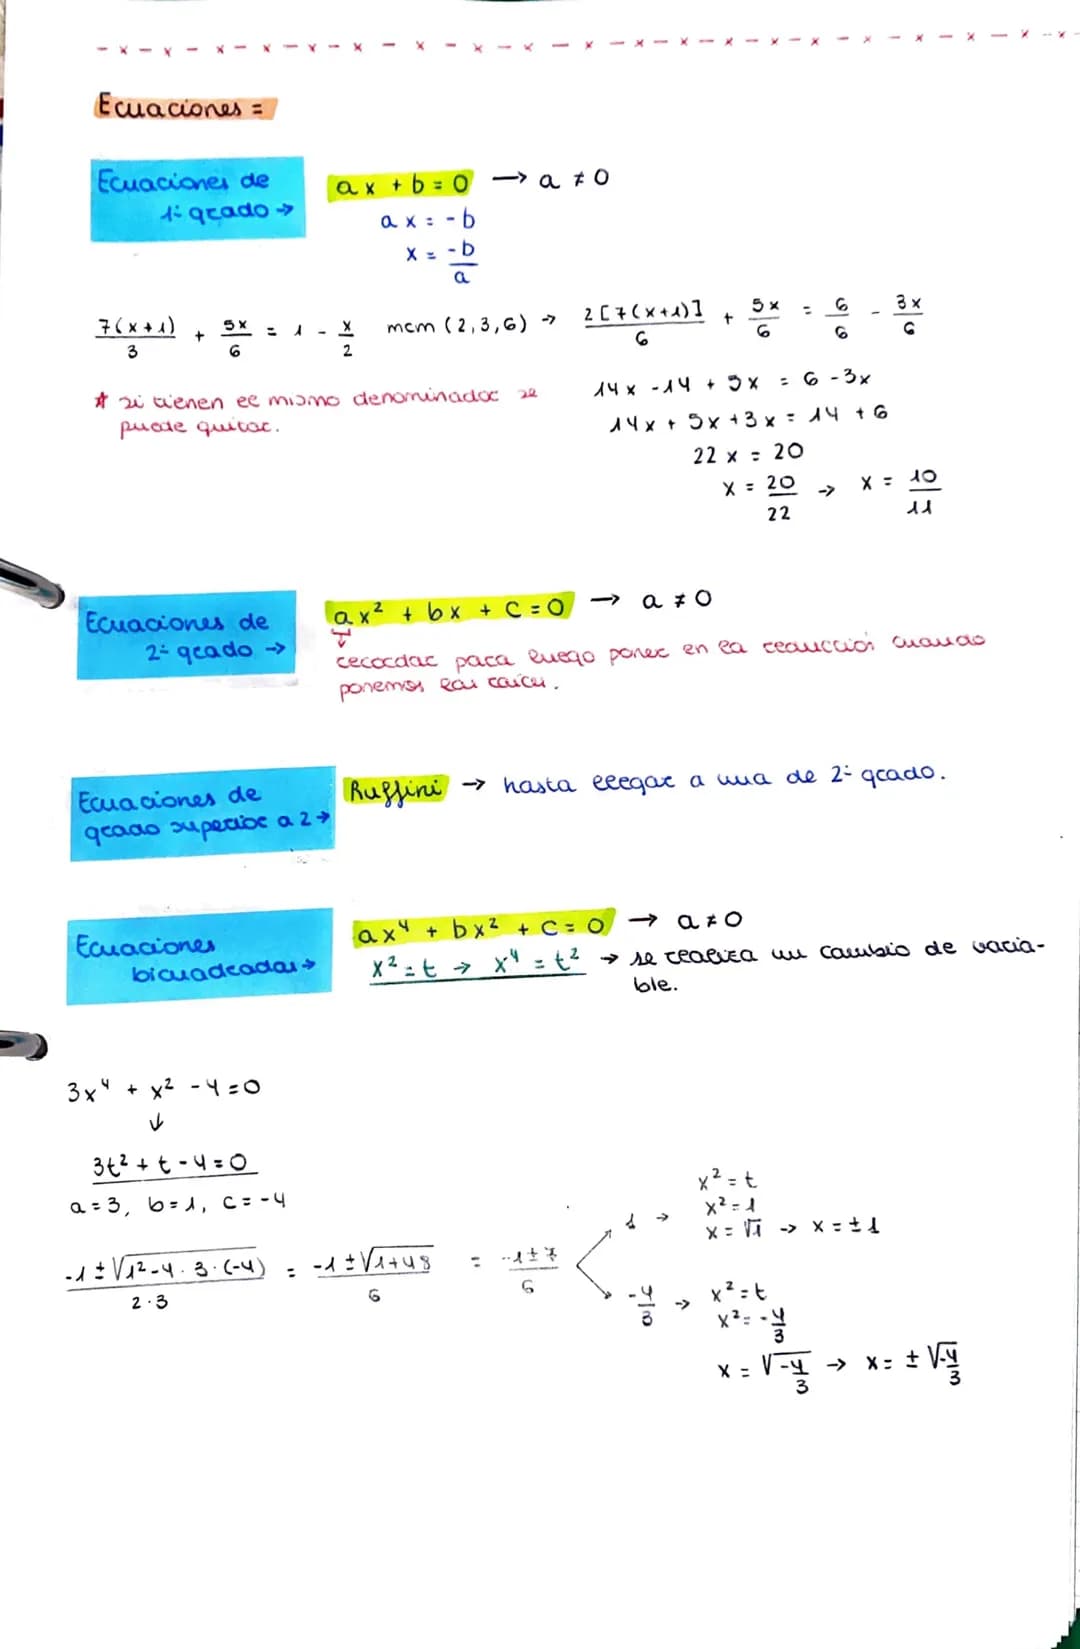 Ecuaciones =
Ecuaciones de
1º grado →
ax + b = 0 → a ≠ 0
ax = -b
x = -b/a
7(x+1)/3 + 5x/6 = 1 - x/2 mcm (2,3,6) → 2[7(x+1)]/6 + 5x/6 = 6/6 - 3x/6
* si tienen el mismo denominador se
puede quitar.
14x - 14 + 5x = 6 - 3x
14x + 5x + 3x = 14 + 6
22x = 20
x = 20/22 → x = 10/11
Ecuaciones de
2º grado →
ax² + bx + c = 0 → a ≠ 0
recordar para luego poner en la reducción cuando
ponemos las raíces.
Ecuaciones de
grado superior a 2 →
Ruffini → hasta llegar a una de 2º grado.
Ecuaciones
bicuadradas →
ax⁴ + bx² + c = 0 → a ≠ 0
x² = t → x⁴ = t² → se realiza un cambio de varia-
ble.
3x⁴ + x² - 4 = 0
↓
3t² + t - 4 = 0
a = 3, b = 1, c = -4
-1 ± √1² - 4 · 3 · (-4) / 2·3 = -1 ± √1+48 / 6 = -1 ± 7 / 6
1 → x² = t
x² = 1
x = √1 → x = ±1
-4/3 → x² = t
x² = -4/3
x = √-4/3 → x = ± √-4/3